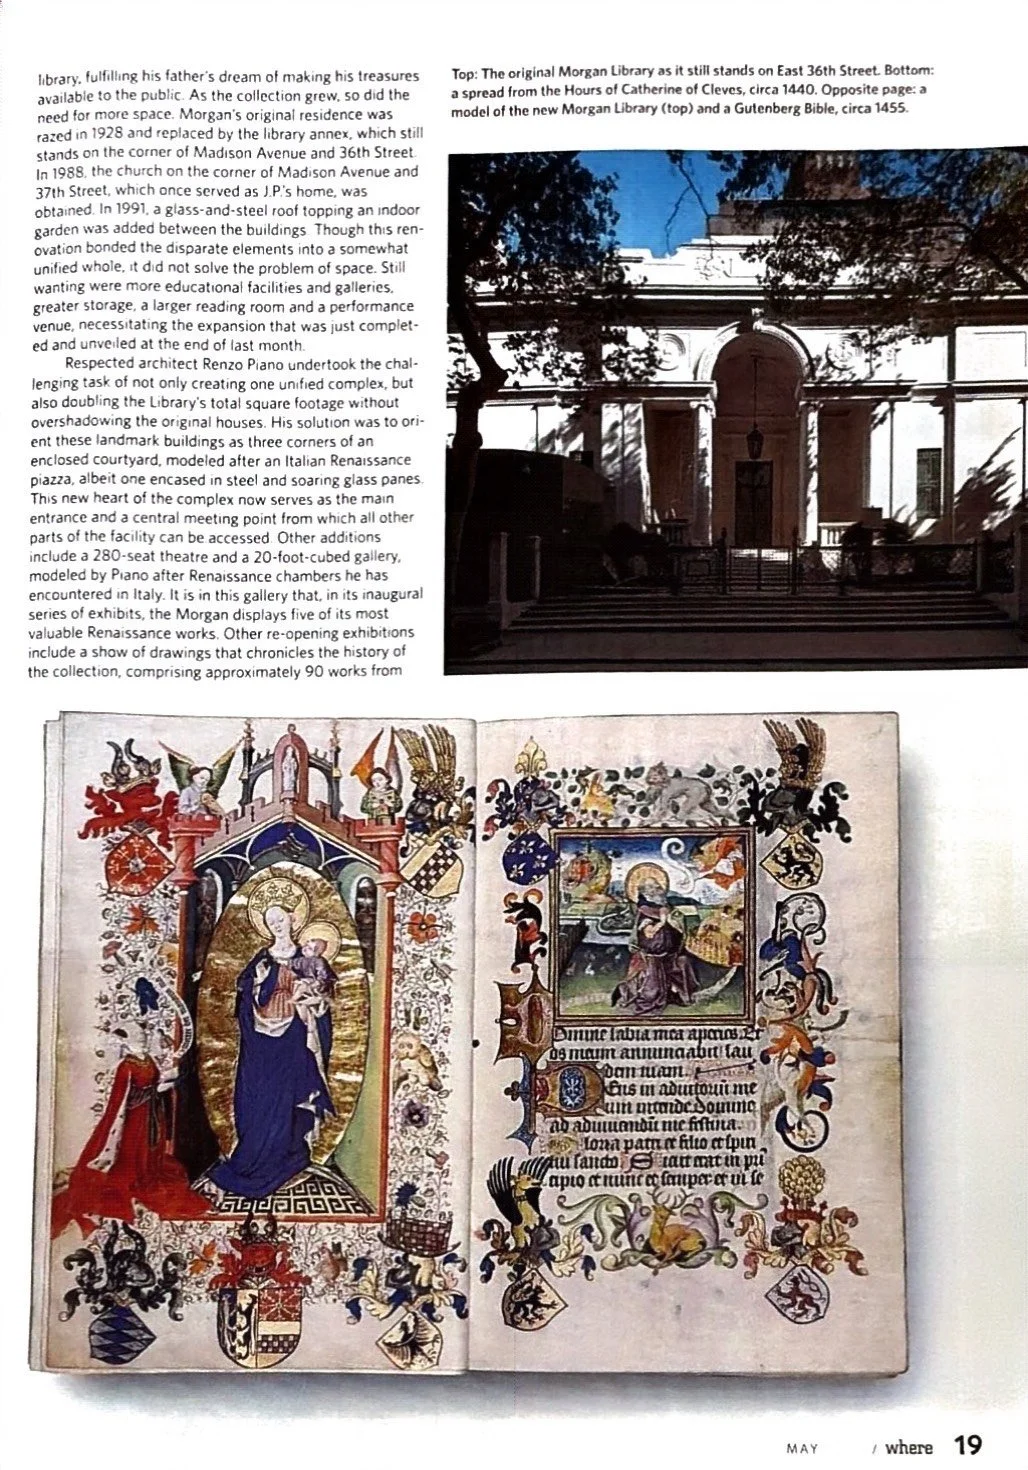 library, fulfilling his father's dream of making his treasures
available to the public. As the collection grew, so did the
need for more space. Morgan's original residence was
razed in 1928 and replaced by the library annex, which still
stands on the corner of Madison Avenue and 36th Street.
In 1988, the church on the corner of Madison Avenue and
37th Street, which once served as J.P.'s home, was
obtained. In 1991, a glass-and-steel roof topping an indoor
garden was added between the buildings. Though this ren-
ovation bonded the disparate elements into a somewhat
unified whole, it did not solve the problem of space. Still
wanting were more educational facilities and galleries,
greater storage, a larger reading room and a performance
venue, necessitating the expansion that was just complet-
ed and unveiled at the end of last month.
Respected architect Renzo Piano undertook the chal-
lenging task of not only creating one unified complex, but
also doubling the Library's total square footage without
overshadowing the original houses. His solution was to ori-
ent these landmark buildings as three corners of an
enclosed courtyard, modeled after an Italian Renaissance
piazza, albeit one encased in steel and soaring glass panes.
This new heart of the complex now serves as the main
entrance and a central meeting point from which all other
parts of the facility can be accessed. Other additions
include a 280-seat theatre and a 20-foot-cubed gallery,
modeled by Piano after Renaissance chambers he has
encountered in Italy. It is in this gallery that, in its inaugural
series of exhibits, the Morgan displays five of its most
valuable Renaissance works. Other re-opening exhibitions
include a show of drawings that chronicles the history of
the collection, comprising approximately 90 works from
Top: The original Morgan Library as it still stands on East 36th Street. Bottom:
a spread from the Hours of Catherine of Cleves, circa 1440. Opposite page: a
model of the new Morgan Library (top) and a Gutenberg Bible, circa 1455.
Domine labia mea aperies. Et
os meum annunciabit lau
dem tuam.
Deus in adiutoriū me
um intende Domine
ad adiuuandū me festina.
Gloria patri et filio et spiri
tui sancto Sicut erat in pri
cipio et nunc et semper et in se
MAY / where 19